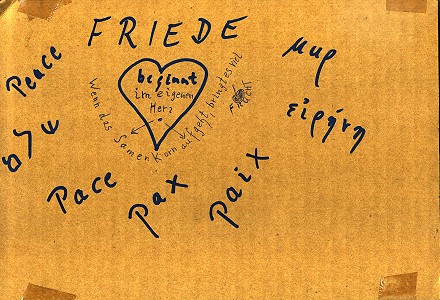 FRIEDE
Peace
мир
beginnt
im eigenen
Herz
!
Wenn das Samenkorn aufgeht, bringt es viel
Frucht
εἰρήνη
Pace
pax
paix